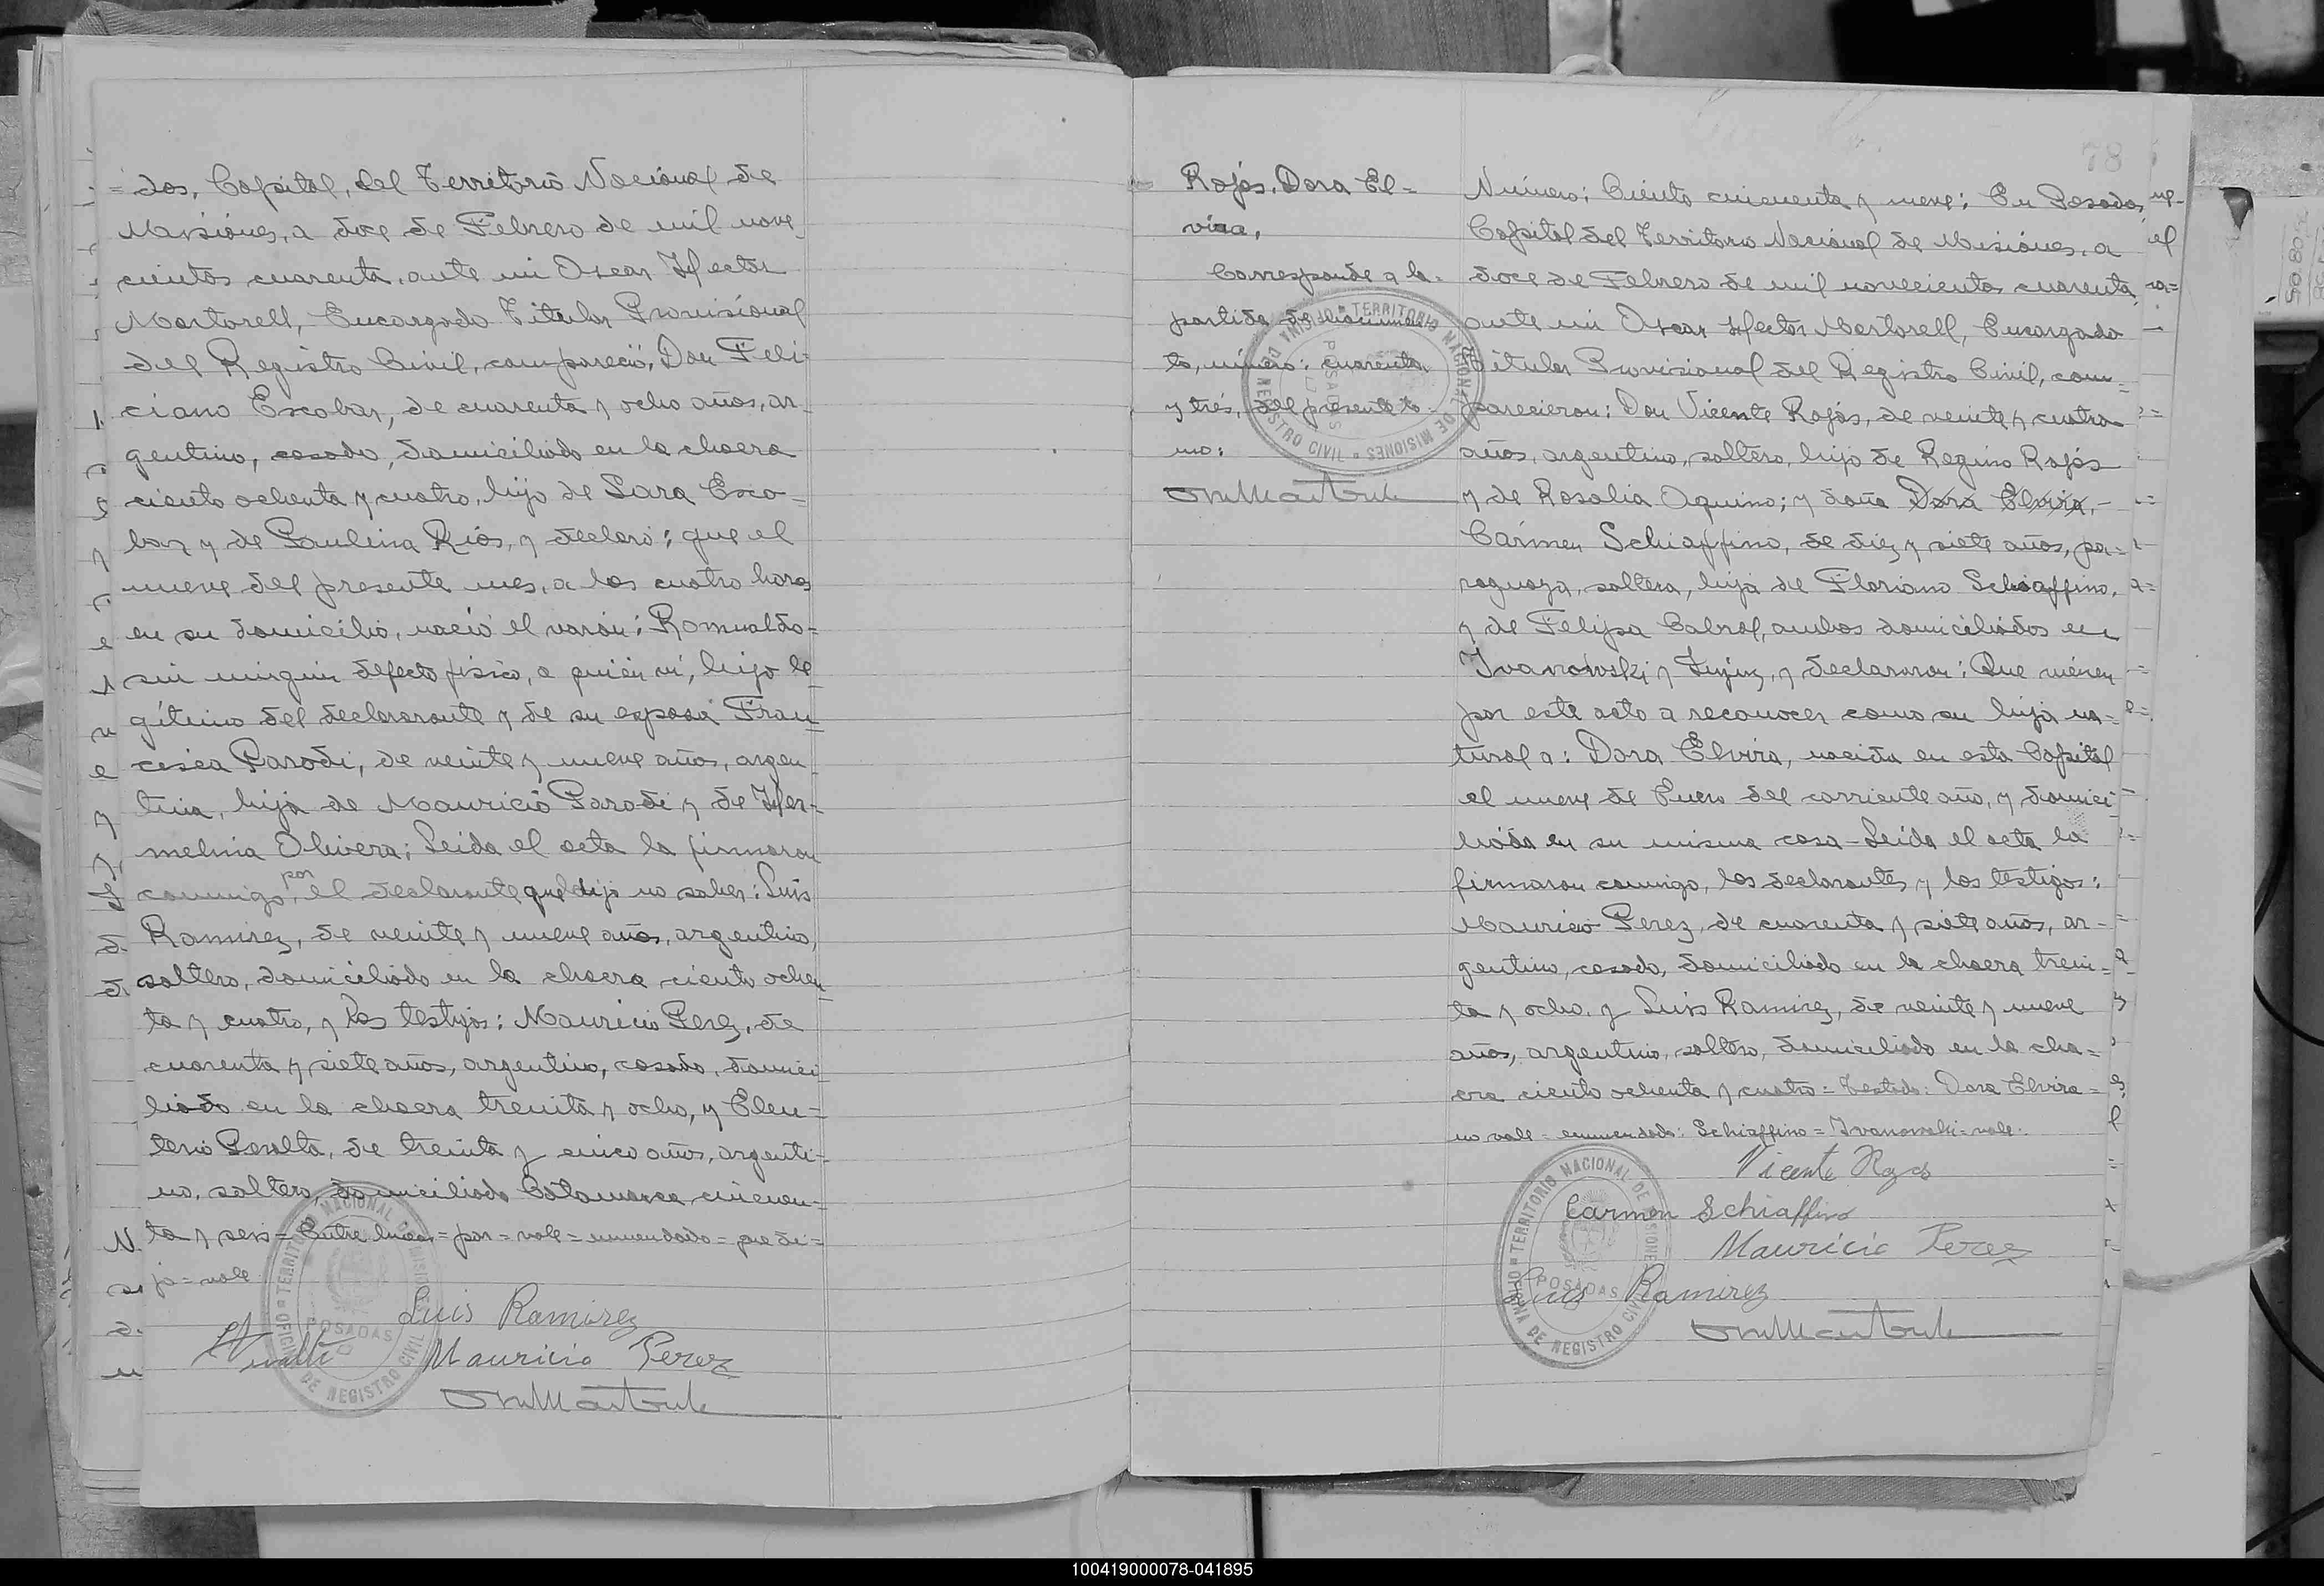 =dos, Capital, del Territorio Nacional de
Misiónes, a doce de Febrero de mil nove_
cientos cuarenta, ante mi Oscar Hector
Martorell, Encargado Titular Provisiónal
del Registro Civil, compareció, Don Feli-
ciano Escobar, de cuarenta y ocho años, ar_
gentino, casado, domiciliado en la chacra
ciento ochenta y cuatro, hijo de Sara Esco=
bar y de Paulina Riós, y declaro: que el
nueve del presente mes, a las cuatro horas
en su domicilio, nació el varón: Romualdo=
sin ningun defecto fisico, a quién ví, hijo le_
gítimo del declararante y de su esposa Fran_
cisca Parodi, de veinte y nueve años, argen_
tina, hija de Mauricio Parodi y de Her=
melina Olivera; Leida el acta la firmaron
conmigo, por el declarante que dijo no saber: Luis
Ramirez, de veinte y nueve años, argentino,
soltero, domiciliado en la chacra ciento ochen_
ta y cuatro, y los testigos: Mauricio Perez, de
cuarenta y siete años, argentino, casado, domici_
liado en la chacra treinta y ocho, y Eleu=
terio Peralta, de treinta y cinco años, argenti=
no, soltero, domiciliado Catamarca cincuen=
ta y seis = Entre lineas = por = vale = enmendado = que di=
jo = vale
Luis Ramirez
Mauricio Perez
OFICINA DE REGISTRO CIVIL TERRITORIO NACIONAL DE MISIONES
POSADAS
78
Rojás, Dora El=
vira,
Corresponde a la
partida de nacimien
to, número: cuarenta
y trés, del presente to_
mo:
OFICINA DE REGISTRO CIVIL TERRITORIO NACIONAL DE MISIONES
POSADAS
Número: Ciento cincuenta y nueve: En Posadas,
Capital del Territorio Nacional de Misiónes, a
doce de Febrero de mil novecientos cuarenta,
ante mi Oscar Hector Martorell, Encargado
Titular Provisional del Registro Civil, com=
parecieron: Don Vicente Rojás, de veinte y cuatro
años, argentino, soltero, hijo de Regino Rojás
y de Rosalia Aquino; y doña Dora Elvira,-
Cármen Schiaffino, de diéz y siete años, pa=
raguaya, soltera, hija de Floriano Schiaffino,
y de Felipa Cabral, ambos domiciliádos en
Ivanowski y Luján, y declararon: Que viénen
por este acto a reconocer como su hija na=
tural a: Dora Elvira, nacida en esta Capital
el nueve de Enero del corriente año, y domici_
liáda en su misma casa-Leida el acta la
firmaron conmigo, los declarantes y los testigos:
Mauricio Perez, de cuarenta y siete años, ar-
gentino, casado, domiciliado en la chacra trein=
ta y ocho, y Luis Ramirez, de veinte y nueve
años, argentino, soltero, domiciliado en la cha=
cra ciento ochenta y cuatro = Testado: Dora Elvira=
no vale = enmendado: Schiaffino = Ivanowski = vale:
Vicente Rojas
Carmen Schiaffino
Mauricio Perez
Luis Ramirez
OFICINA DE REGISTRO CIVIL TERRITORIO NACIONAL DE MISIONES
POSADAS
100419000078-041895